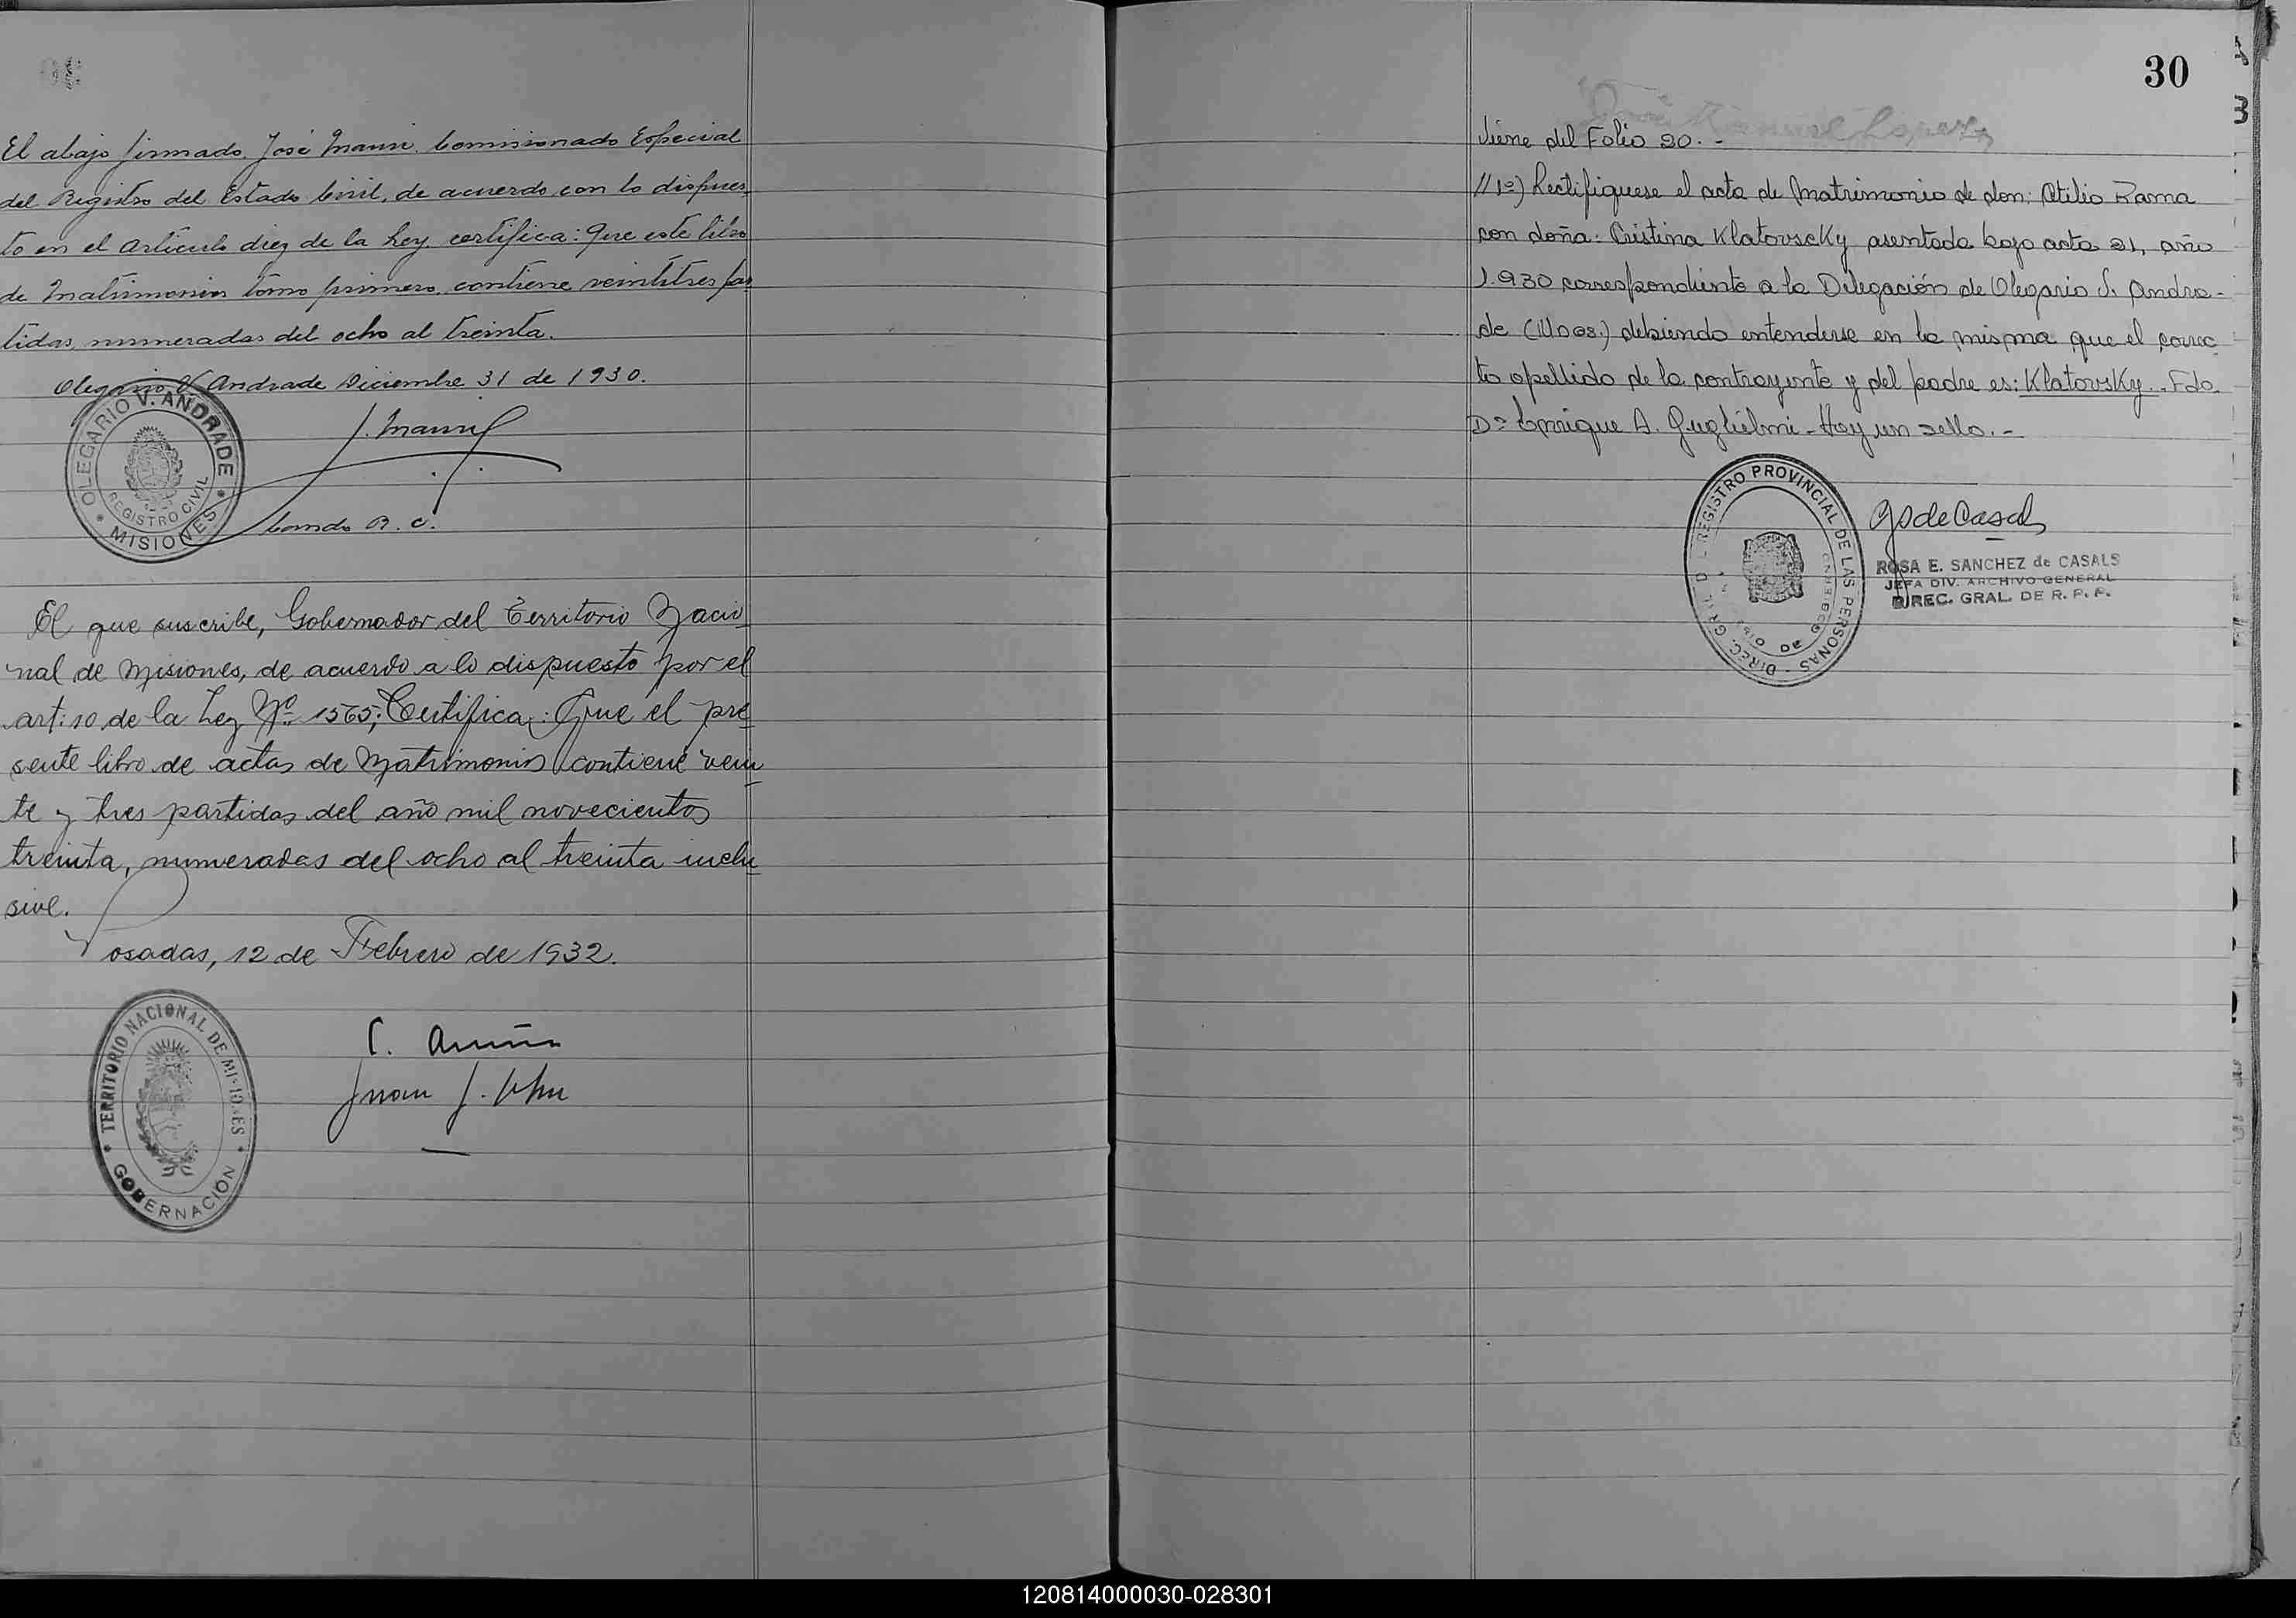 El abajo firmado, José Mauri, Comisionado Especial
del Registro del Estado Civil, de acuerdo con lo dispues-
to en el artículo diez de la Ley certifica: Que este libro
de Matrimonios tomo primero, contiene veintitres par-
tidas, numeradas del ocho al treinta.
Olegario V. Andrade Diciembre 31 de 1930.
OLEGARIO V. ANDRADE
REGISTRO CIVIL
MISIONES
J. Mauri
El que suscribe, Gobernador del Territorio Nacio-
nal de Misiones, de acuerdo a lo dispuesto por el
art: 10 de la Ley Nº 1565; Certifica: Que el pre-
sente libro de actas de Matrimonios contiene vein-
te y tres partidas del año mil novecientos
treinta, numeradas del ocho al treinta inclu-
sive.
Posadas, 12 de Febrero de 1932.
TERRITORIO NACIONAL DE MISIONES
GOBERNACION
C. Acuña
Juan J.
30
Viene del Folio 20. -
//1º) Rectifiquese el acta de Matrimonio de don: Otilio Rama
con doña: Cristina Klatovscky asentada bajo acta 21, año
1.930 correspondiente a la Delegación de Olegario V. Andra-
de (Mnes.) debiendo entenderse en la misma que el correc-
to apellido de la contrayente y del padre es: Klatovsky. - Fdo.
Dº Enrique A. Guglielmi - Hay un sello. -
DIREC. GRAL. DEL REGISTRO PROVINCIAL DE LAS PERSONAS
MINISTERIO DE GOBIERNO
ROSA E. SANCHEZ de CASALS
JEFA DIV. ARCHIVO GENERAL
DIREC. GRAL. DE R. P. P.
120814000030-028301